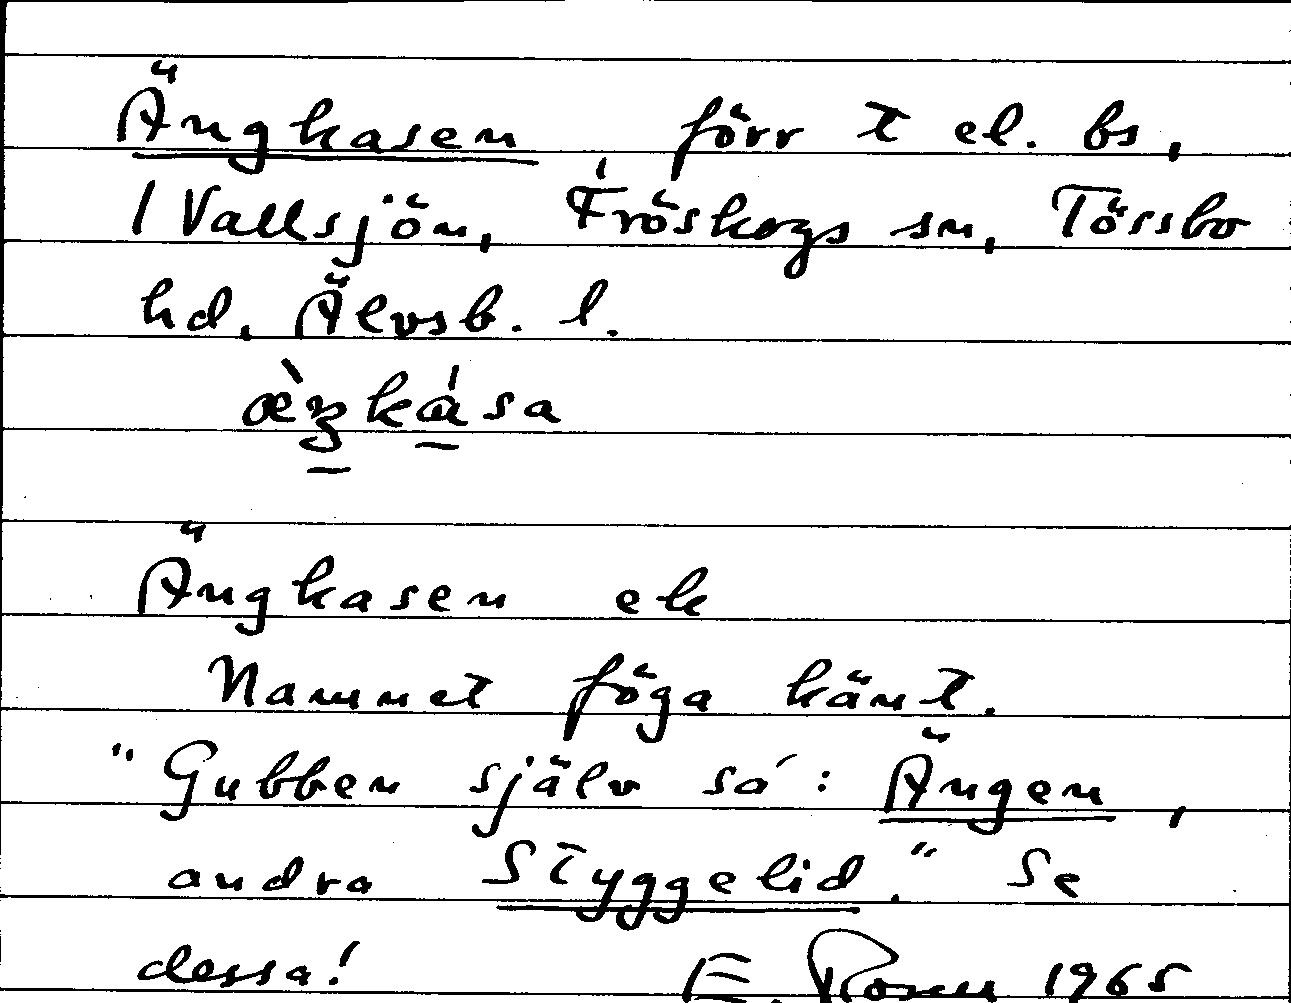 Ängkasen förr t el. bs,
/ Vallsjön, Fröskogs sn, Tössbo
hd, Älvsb. l.
Ängkasen ek
Namnet föga känt.
"Gubben själv sa': Ängen,
andra Styggelid." Se
dessa! E. Rosell 1965